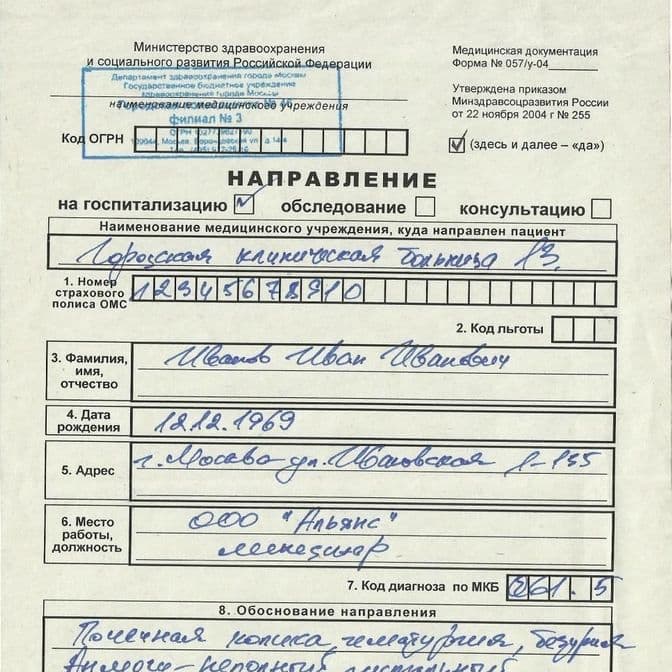 Министерство здравоохранения
и социального развития Российской Федерации
Медицинская документация
Форма № 057/у-04
Утверждена приказом
Минздравсоцразвития России
от 22 ноября 2004 г № 255
Департамент здравоохранения города Москвы
Государственное бюджетное учреждение
здравоохранения города Москвы
наименование медицинского учреждения
филиал № 3
Код ОГРН
(здесь и далее – «да»)
НАПРАВЛЕНИЕ
на госпитализацию обследование консультацию
Наименование медицинского учреждения, куда направлен пациент
Городская клиническая больница 13
1. Номер
страхового
полиса ОМС
12345678910
2. Код льготы
3. Фамилия,
имя,
отчество
Иванов Иван Иванович
4. Дата
рождения
12.12.1969
5. Адрес
г. Москва ул. Ивановская 1-135
6. Место
работы,
должность
ООО "Альянс"
менеджер
7. Код диагноза по МКБ
61.5
8. Обоснование направления
Почечная колика, гематурия,